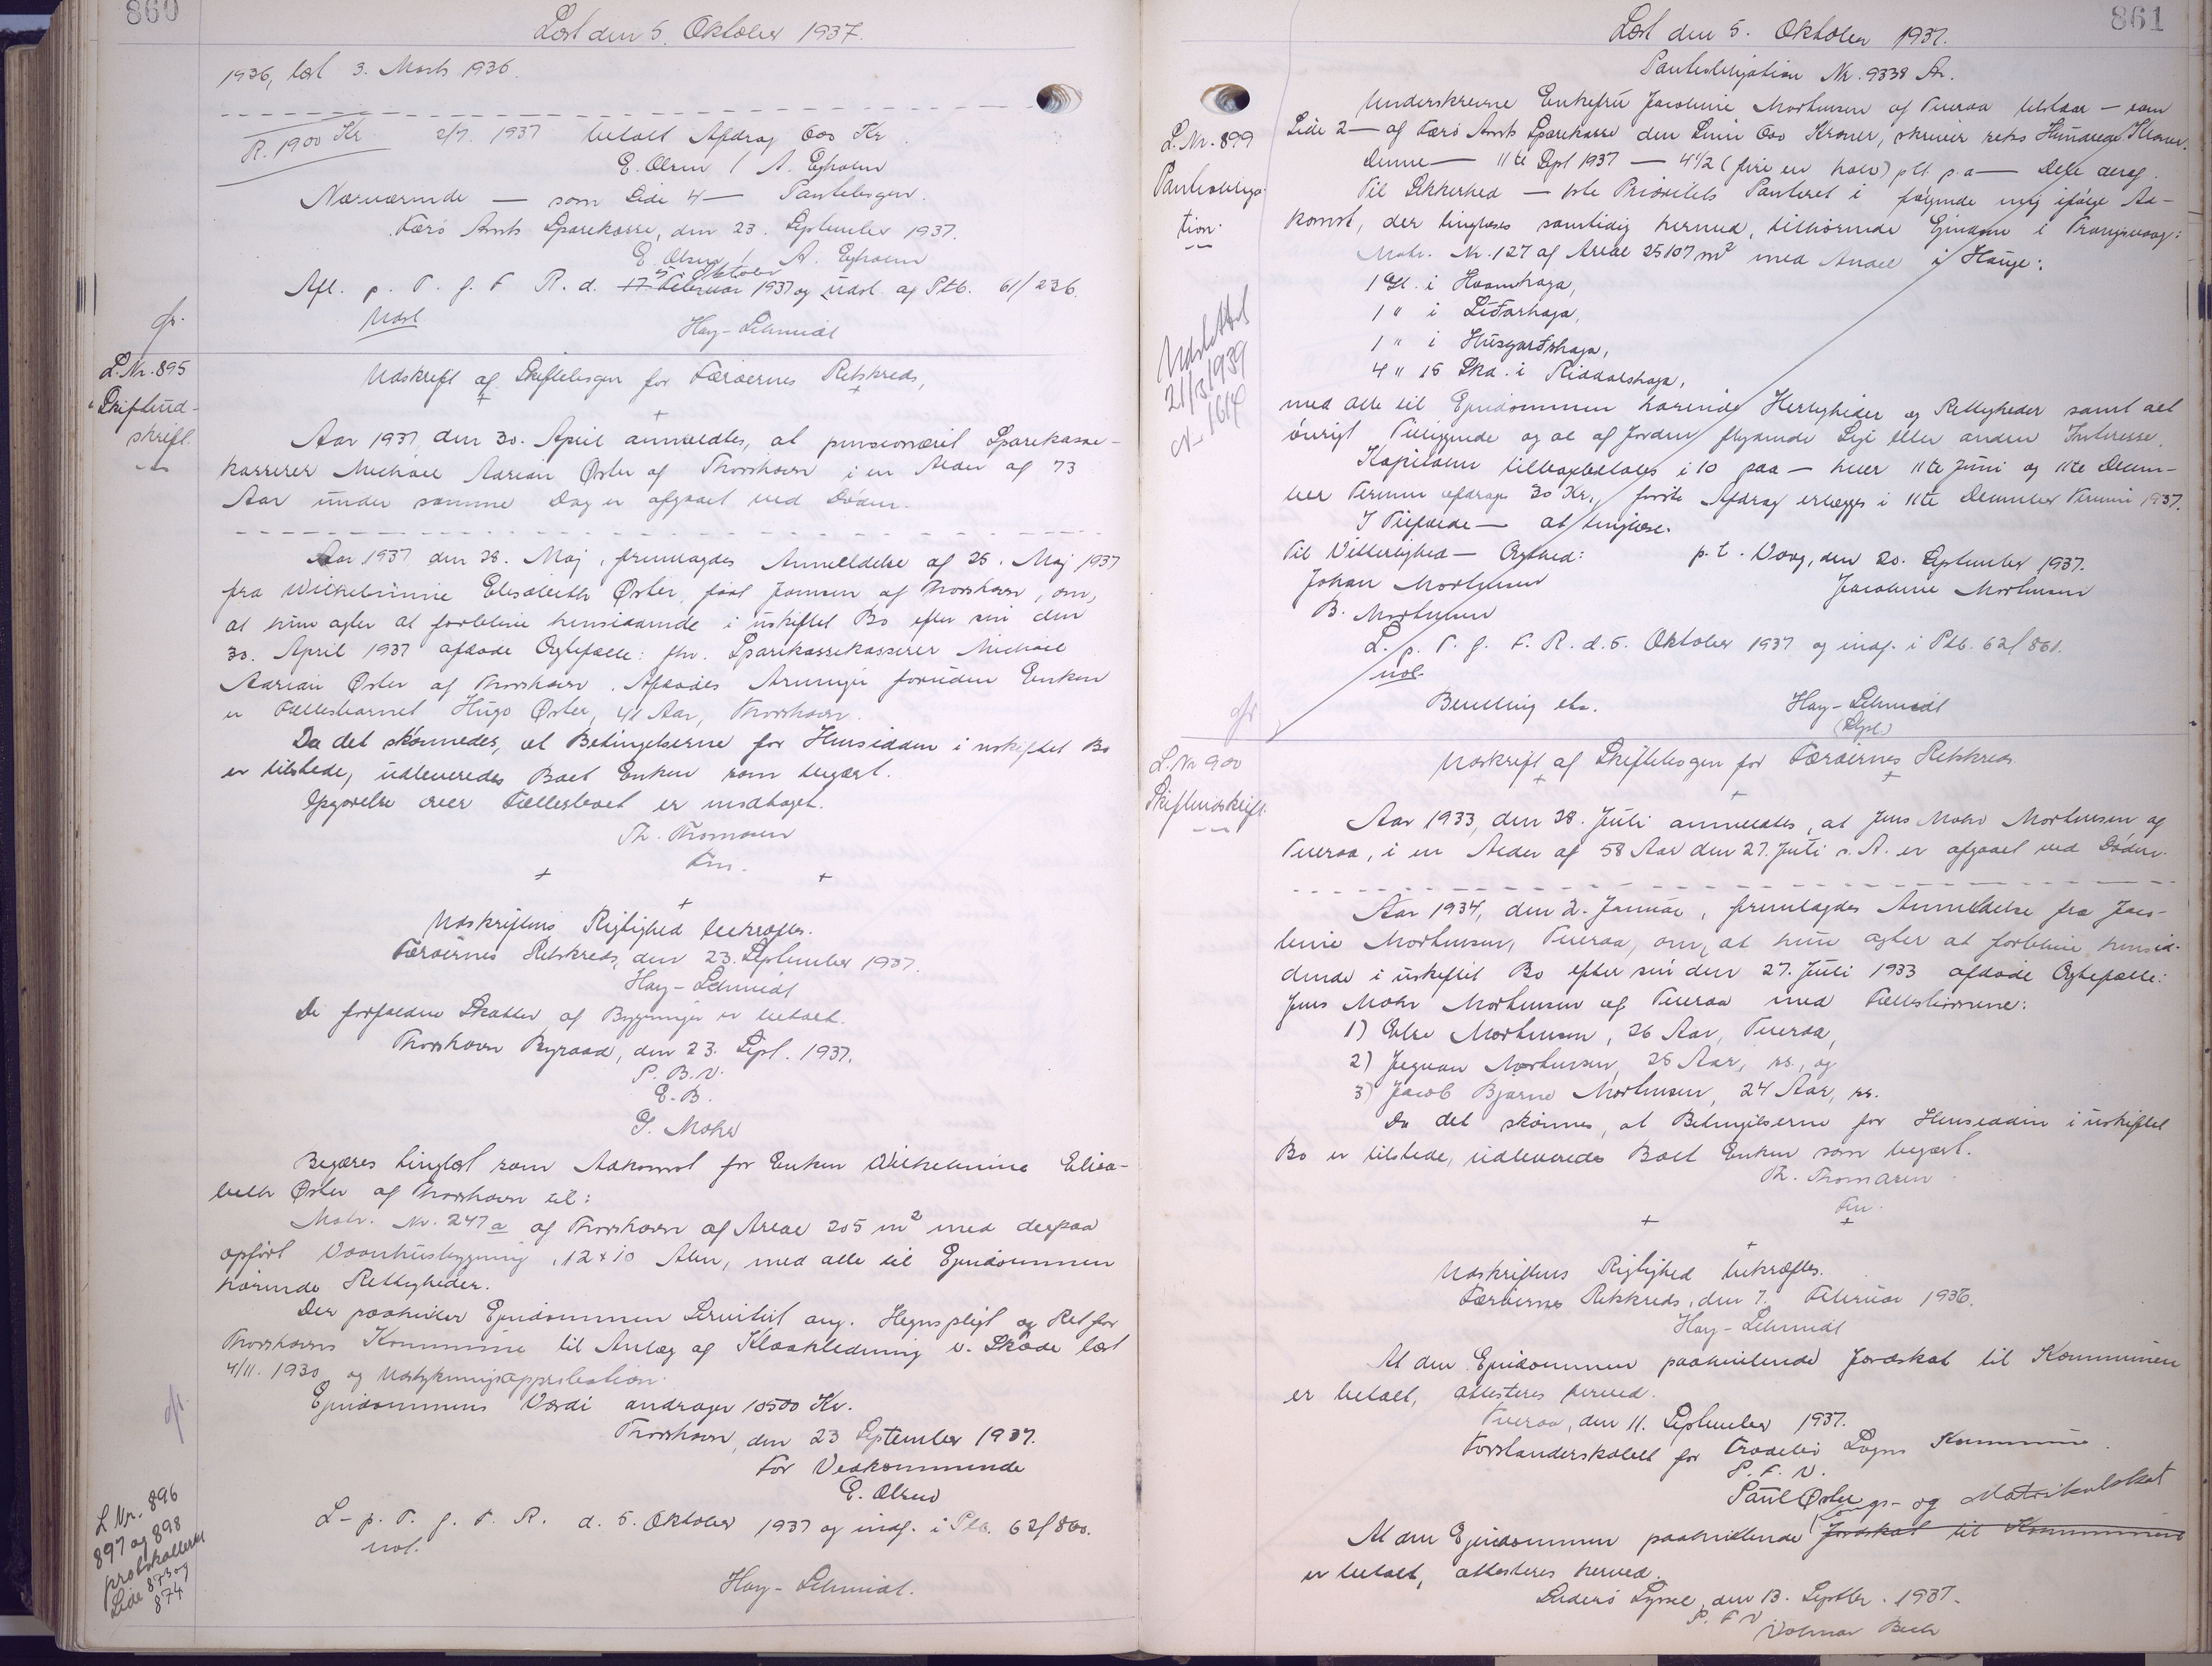 860
Læst den 5. Oktober 1937.
1936, læst 3. Marts 1936.
R. 1900 Kr. 2/7. 1937 betalt Afdrag 600 Kr.
E. Olsen / A. Eyholm
Nærværende — som Side 4 — Pantebogen.
Færø Amts Sparekasse, den 23. September 1937.
E. Olsen / A. Eyholm
5. Oktober
Afl. p. T. g. F. R. d. 17. Februar 1937 og udsl. af Ptb. 61/236.
Udsl.
Hay-Schmidt
L. Nr. 895
Skifteud-
skrift.
Udskrift af Skiftebogen for Færøernes Retskreds,
Aar 1937 den 30. April anmeldtes, at pensioneret Sparekasse-
kasserer Michael Adrian Øster af Thorshavn i en Alder af 73
Aar under samme Dag er afgaaet ved Døden.
Aar 1937 den 28. Maj, fremlagdes Anmeldelse af 25. Maj 1937
fra Wilhelmine Elisabeth Øster, født Joensen af Thorshavn, om,
at hun agter at forblive hensiddende i uskiftet Bo efter sin den
30. April 1937 afdøde Ægtefælle: fhv. Sparekassekasserer Michael
Adrian Øster af Thorshavn. Afdødes Arvinger foruden Enken
er Fællesbarnet Hugo Øster, 41 Aar, Thorshavn.
Da det skønnedes, at Betingelserne for Hensidden i uskiftet Bo
er tilstede, udleveredes Boet Enken som begært.
Opgørelse over Fællesboet er modtaget.
Th. Thomasen
Fm.
Udskriftens Rigtighed bekræftes.
Færøernes Retskreds, den 23. September 1937.
Hay-Schmidt
De forfaldne Skatter af Bygninger er betalt.
Thorshavn Byraad, den 23. Sept. 1937.
P. B. V.
E. B.
G. Mohr
Begæres tinglæst som Adkomst for Enken Wilhelmine Elisa-
beth Øster af Thorshavn til:
Matr. Nr. 247 a af Thorshavn af Areal 205 m² med derpaa
opført Vaanhusbygning, 12 x 10 Alen, med alle til Ejendommen
hørende Rettigheder.
Der paahviler Ejendommen Servitut ang. Hegnspligt og Ret for
Thorshavns Kommune til Anlæg af Kloakledning v. Skøde læst
4/11. 1930 og Udstykningsapprobation.
Ejendommens Værdi andrager 10500 Kr.
Thorshavn, den 23 September 1937.
For Vedkommende
E. Olsen
L. p. T. g. F. R. d. 5. Oktober 1937 og indf. i Ptb. 62/860.
Hay-Schmidt.
L Nr. 896
897 og 898
protokolleret
Side 873 og
874
861
Læst den 5. Oktober 1937.
Pantobligation Nr. 9338 Sr.
L. Nr. 899
Pantobliga-
tion.
Underskrevne Enkefru Jacobine Mortensen af Tveraa tilstaar — som
Side 2 — af Færø Amts Sparekasse den Sum 600 Kroner, skriver seks Hundrede Kroner.
Denne — 11te Sept 1937 — 4 1/2 (fire en halv) pCt. p.a —
Til Sikkerhed — 1ste Prioritets Panteret i følgende mig ifølge Ad-
komst, der tinglæses samtidig hermed, tilhørende Ejendom i Trangisvaag:
Matr. Nr. 127 af Areal 25107 m² med Andel i Hauge:
1 Gl. i Hvamhaga,
1 " i Liðarhaga,
1 " i Husgarðshaga,
4 " 15 Skd. i
med alle til Ejendommen hørende Herligheder og Rettigheder samt alt
øvrigt Tilliggende og al af Jorden flydende Leje eller anden Interesse.
Kapitalen tilbagebetales i 10 paa — hver 11te Juni og 11te Decem-
ber Termin afdrage 30 Kr., første Afdrag erlægges i 11te December Termin 1937.
I Tilfælde — at tinglæse.
Til Vitterlighed — Ægthed: p. t. Vaag, den 20. September 1937.
Johan Mortensen Jacobine Mortensen
B. Mortensen
L. p. T. g. F. R. d. 5. Oktober 1937 og indf. i Ptb. 62/861.
Hay-Schmidt
Udsl.
21/3 1939
L. Nr 900
Skifteudskrift.
Udskrift af Skiftebogen for Færøernes Retskreds
Aar 1933, den 28. Juli anmeldtes, at Jens Mohr Mortensen af
Tveraa, i en Alder af 58 Aar den 27. Juli s. A. er afgaaet ved Døden.
Aar 1934, den 2. Januar, fremlagdes Anmeldelse fra Jaco-
bine Mortensen, Tveraa, om, at hun agter at forblive hensid-
dende i uskiftet Bo efter sin den 27. Juli 1933 afdøde Ægtefælle:
Jens Mohr Mortensen af Tveraa med Fællesbørnene:
1) Else Mortensen, 26 Aar, Tveraa,
2) Jegvan Mortensen, 25 Aar, ss., og
3) Jacob Bjarne Mortensen, 24 Aar, ss.
Da det skønnes, at Betingelserne for Hensidden i uskiftet
Bo er tilstede, udleveredes Boet Enken som begært.
Th. Thomasen
Fm.
Udskriftens Rigtighed bekræftes.
Færøernes Retskreds, den 7. Februar 1936.
Hay-Schmidt
At den Ejendommen paahvilende Jordskat til Kommunen
er betalt, attesteres herved.
Tveraa, den 11. September 1937.
Forstanderskabet for Frodebø Sogns Kommune.
P. F. V.
Paul Øster
gs- og Matrikulskat
At den Ejendommen paahvilende Jordskat til Kommunen
er betalt, attesteres herved.
Suderø Syssel, den 13. Septbr. 1937.
P. F. V